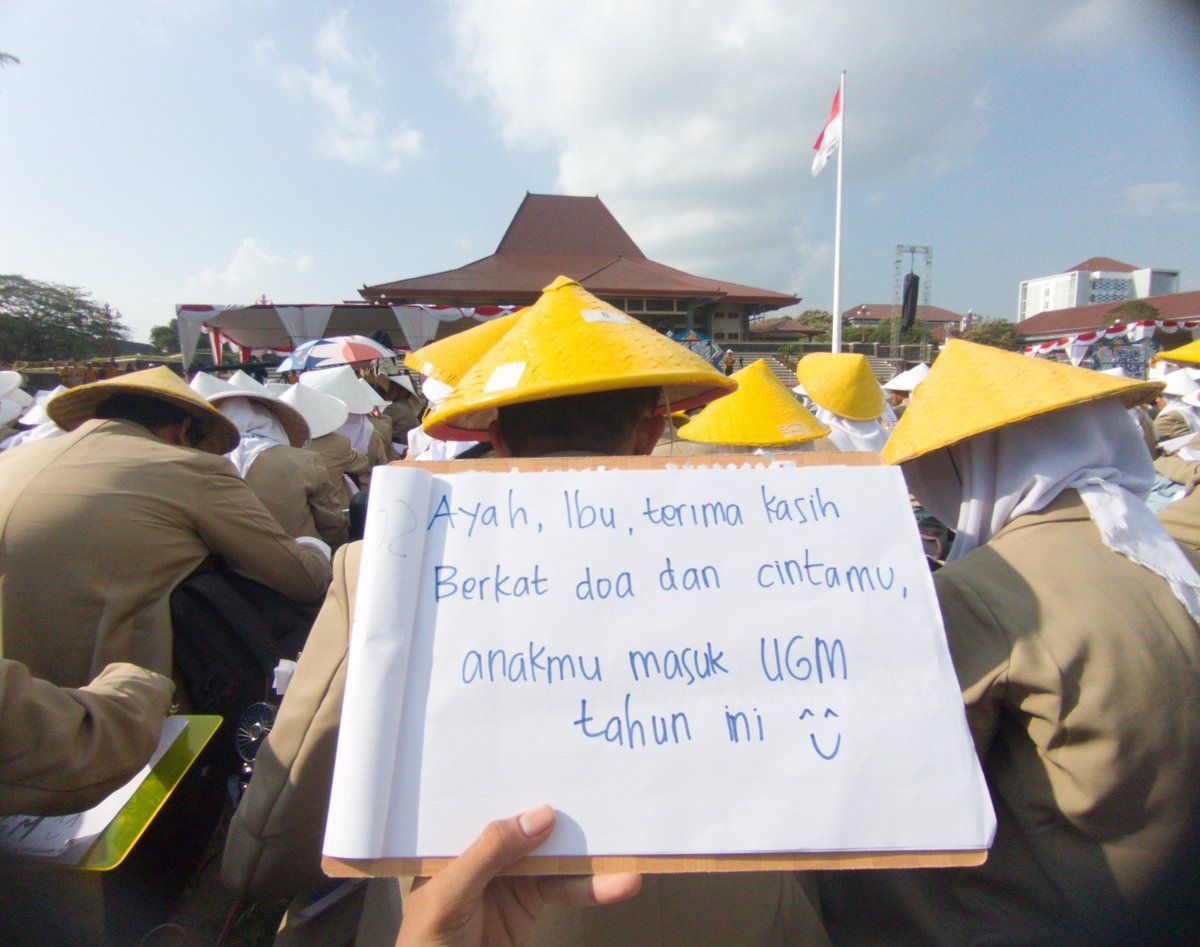 Ayah, Ibu, terima kasih
Berkat doa dan cintamu,
anakmu masuk UGM
tahun ini